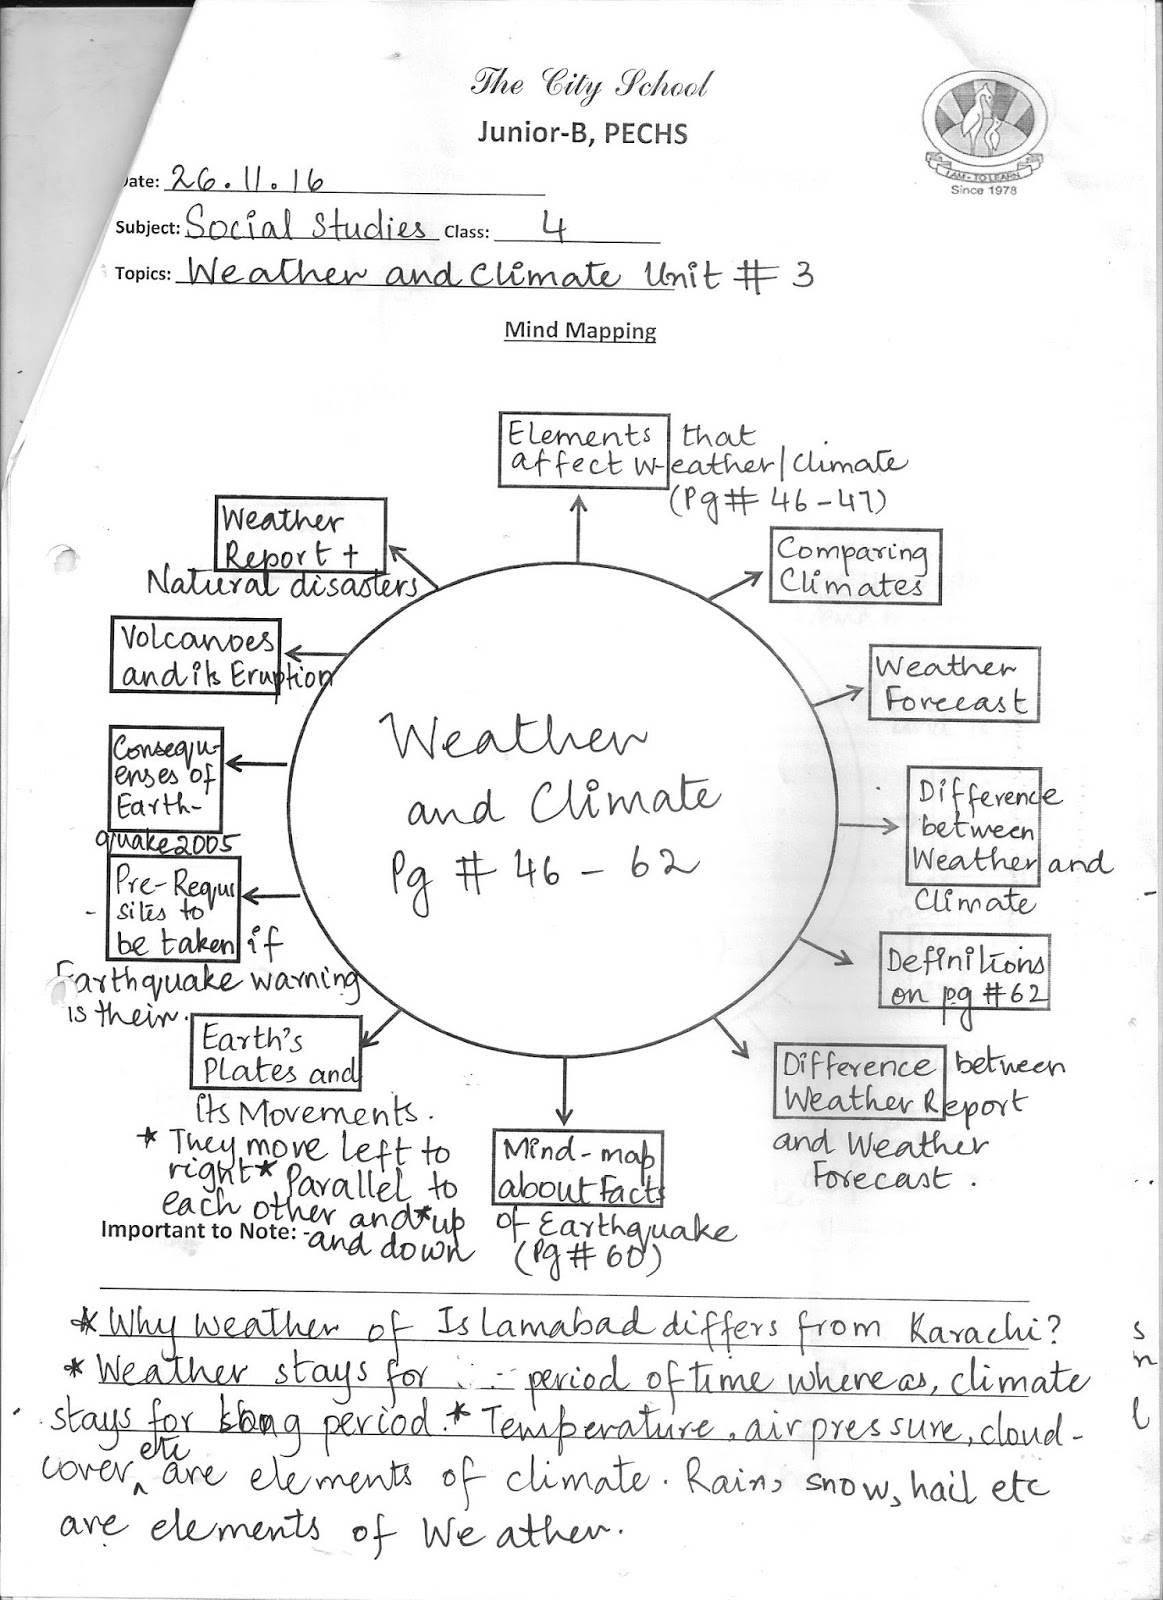 The City School
Junior-B, PECHS
I AM-TO LEARN
Since 1978
ate: 26.11.16
Subject: Social Studies Class: 4
Topics: Weather and Climate Unit # 3
Mind Mapping
Elements that
affect Weather/Climate
(Pg# 46-47)
Comparing
Climates
Weather
Forecast
Difference
between
Weather and
Climate
Definitions
on pg #62
Difference between
Weather Report
and Weather
Forecast.
Mind-map
about Facts
of Earthquake
(Pg# 60)
Earth's
Plates and
its Movements.
* They move left to
right * Parallel to
each other and * up
and down
Pre-Requi
sites to
be taken if
Earthquake warning
is their.
Consequ-
enses of
Earth-
quake 2005
Volcanoes
and its Eruption
Weather
Report +
Natural disasters
Weather
and Climate
Pg # 46 - 62
Important to Note: -
* Why weather of Islamabad differs from Karachi?
* Weather stays for period of time where as, climate
stays for long period. * Temperature, air pressure, cloud-
cover etc are elements of climate. Rain, snow, hail etc
are elements of Weather.
s
n
l